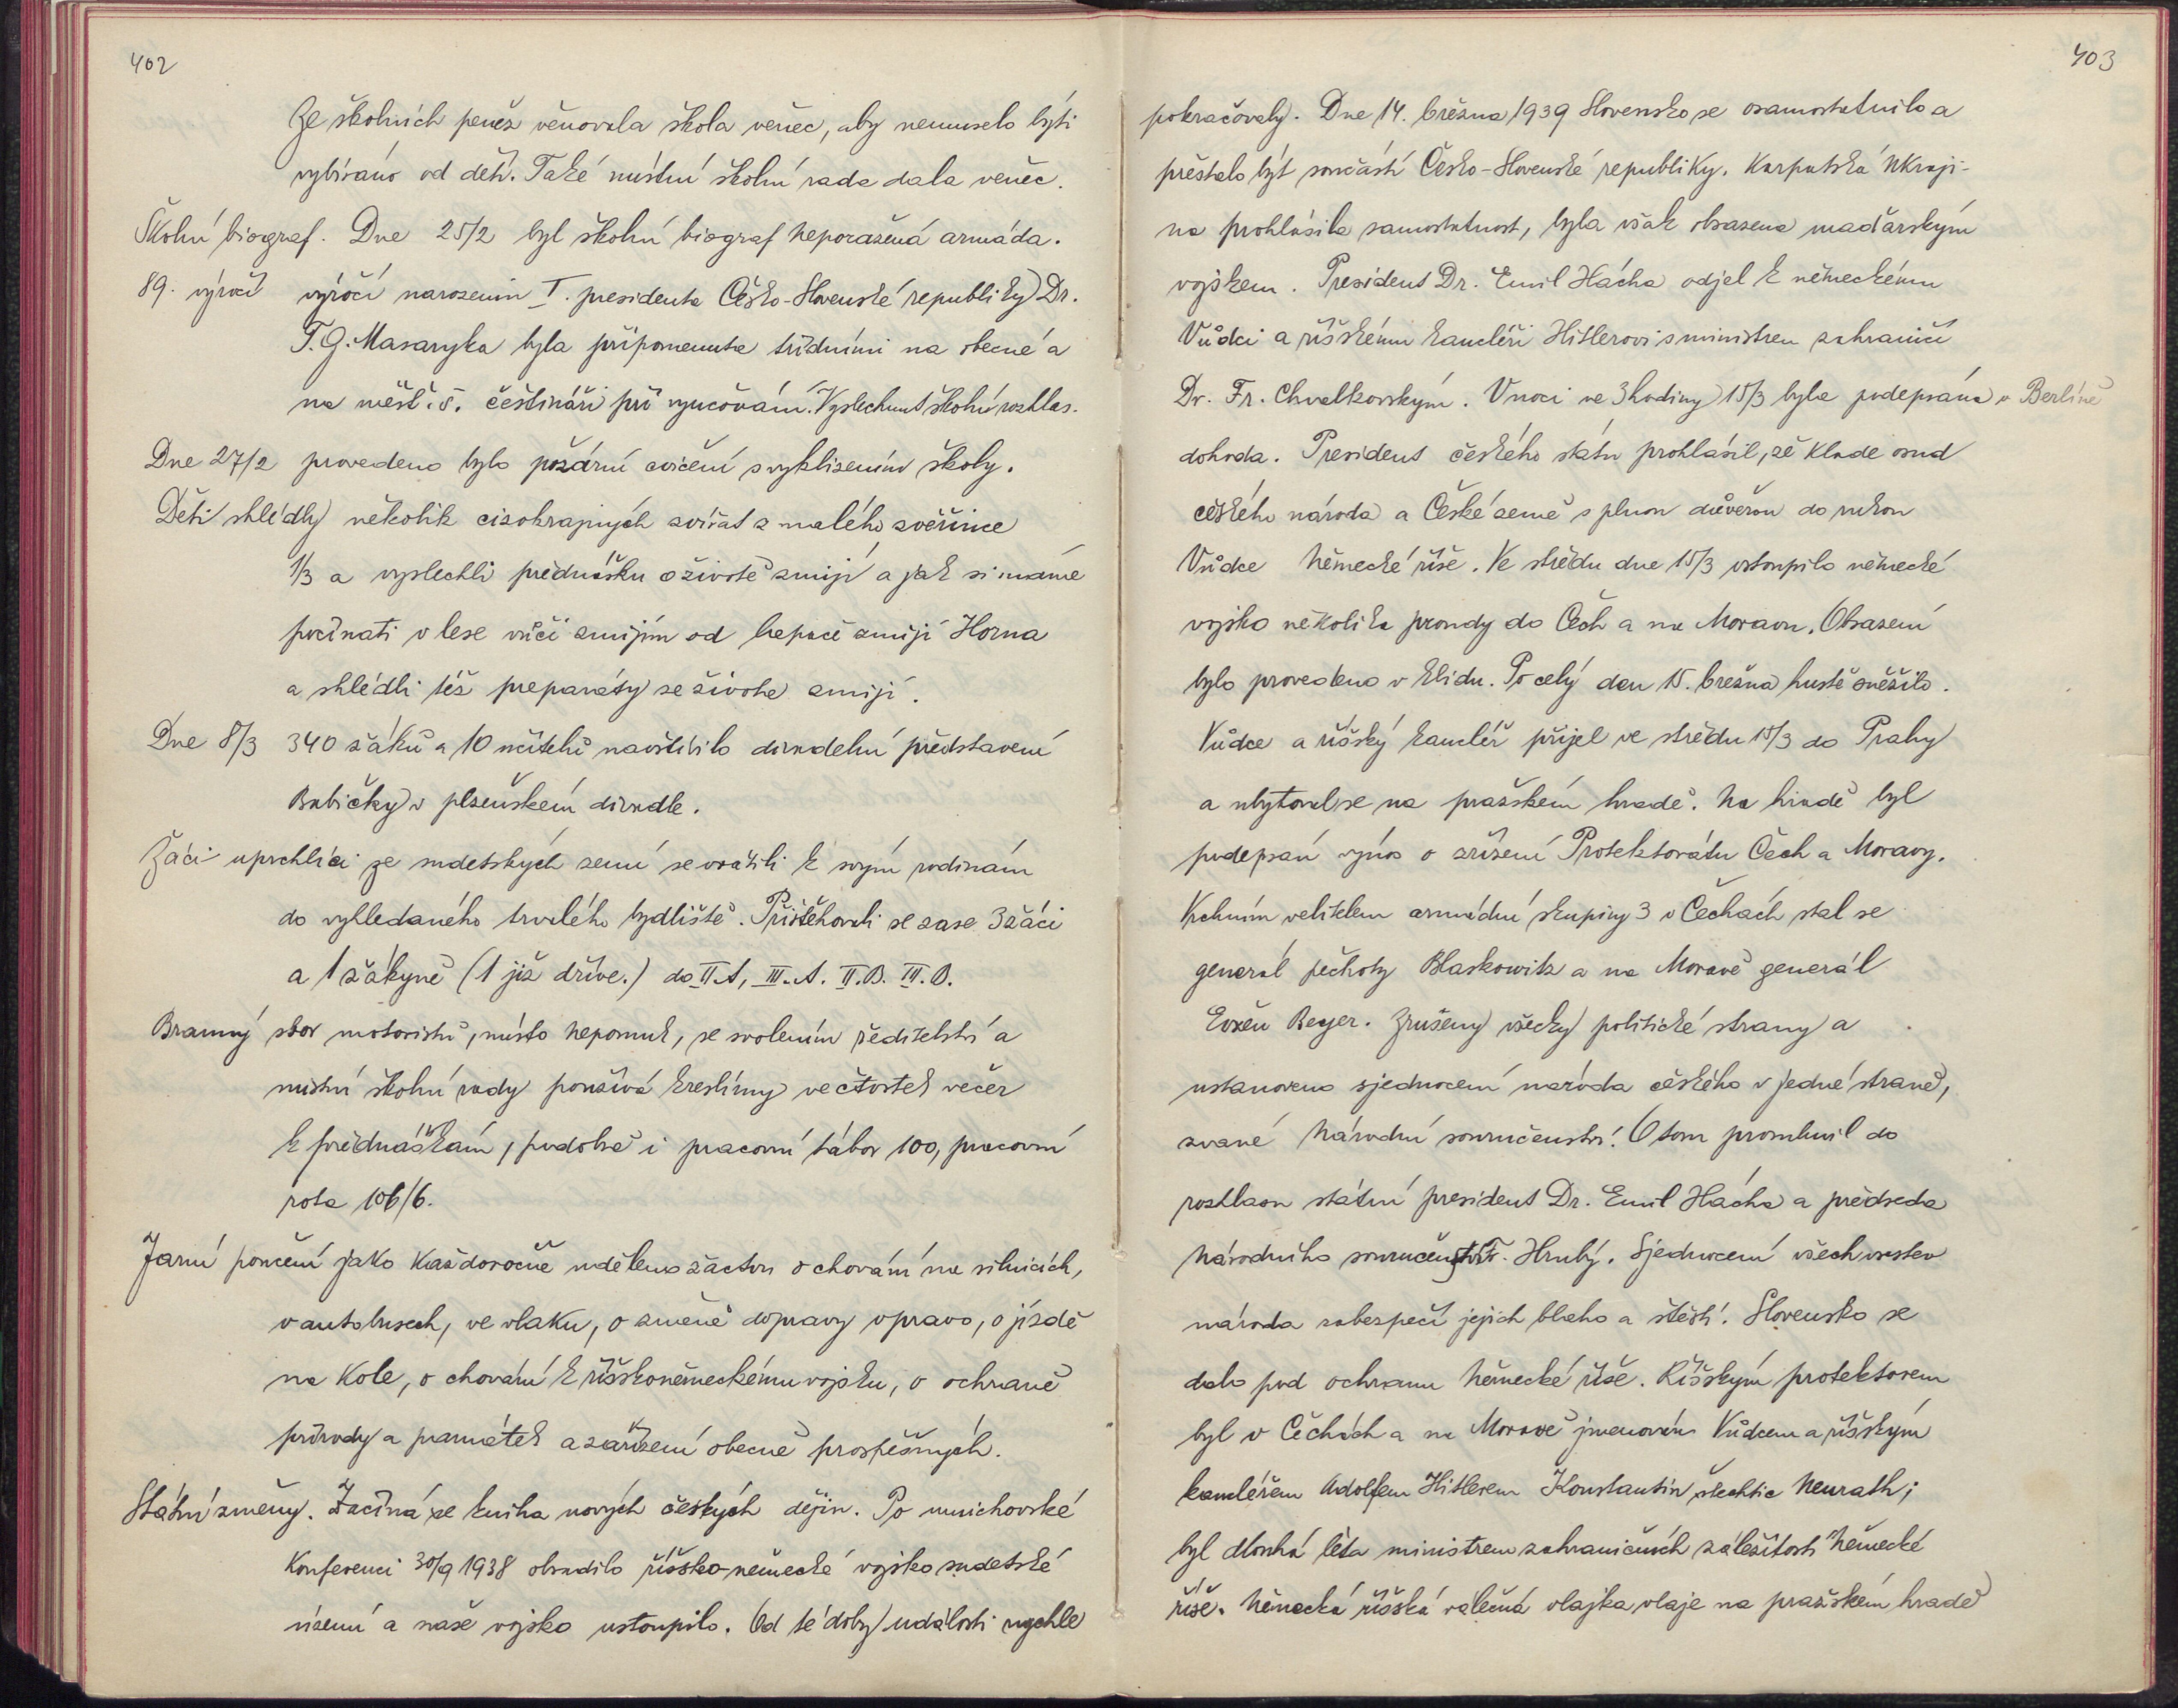 402
Ze školních peněz věnovala škola věnec, aby nemuselo býti
vybíráno od dětí. Také místní školní rada dala věnec.
Školní biograf. Dne 25/2 byl školní biograf Neporažená armáda.
89. výročí výročí narozenin I. presidenta Česko-Slovenské republiky Dr.
T. G. Masaryka byla připomenuta třídními na obecné a
na měšť. š. češtináři při vyučování. Vyslechnut školní rozhlas.
Dne 27/2 provedeno bylo požární cvičení s vyklizením školy.
Děti shlédly několik cizokrajných zvířat z malého zvěřince
1/3 a vyslechli přednášku o životě zmijí a jak si máme
počínati v lese vůči zmijím od lapače zmijí Horna
a shlédli též preparáty ze života zmijí.
Dne 8/3 340 žáků a 10 učitelů navštívilo divadelní představení
Babičky v plzeňském divadle.
Žáci uprchlíci ze sudetských zemí se vrátili k svým rodinám
do vyhledaného trvalého bydliště. Přistěhovali se zase 3 žáci
a 1 žákyně (1 již dříve.) do II.A, III.A. II.B. III.B.
Branný sbor motoristů, místo Nepomuk, se svolením ředitelství a
místní školní rady používá kreslírny ve čtvrtek večer
k přednáškám, podobně i pracovní tábor 100, pracovní
rota 106/6.
Jarní poučení jako každoročně uděleno žactvu o chování na silnicích,
v autobusech, ve vlaku, o změně dopravy vpravo, o jízdě
na kole, o chování k říšskoněmeckému vojsku, o ochraně
přírody a památek a zařízení obecně prospěšných.
Státní změny. Začíná se kniha nových českých dějin. Po mnichovské
Konferenci 30/9 1938 obsadilo říšsko-německé vojsko sudetské
území a naše vojsko ustoupilo. Od té doby události rychle
403
pokračovaly. Dne 14. března 1939 Slovensko se osamostatnilo a
přestalo být součástí Česko-Slovenské republiky. Karpatská Ukraji-
na prohlásila samostatnost, byla však obsazena maďarským
vojskem. President Dr. Emil Hácha odjel k německému
Vůdci a říšskému kancléři Hitlerovi s ministrem zahraničí
Dr. Fr. Chvalkovským. V noci ve 3 hodiny 15/3 byla podepsána v Berlíně
dohoda. President českého státu prohlásil, že klade osud
českého národa a České země s plnou důvěrou do rukou
Vůdce Německé říše. Ve středu dne 15/3 vstoupilo německé
vojsko několika proudy do Čech a na Moravu. Obsazení
bylo provedeno v klidu. Po celý den 15. března hustě sněžilo.
Vůdce a říšský kancléř přijel ve středu 15/3 do Prahy
a ubytoval se na pražském hradě. Na hradě byl
podepsán výnos o zřízení Protektorátu Čech a Moravy.
Vrchním velitelem armádní skupiny 3 v Čechách stal se
generál pěchoty Blaskowitz a na Moravě generál
Evžen Beyer. Zrušeny všecky politické strany a
ustanoveno sjednocení národa českého v jedné straně,
zvané Národní souručenství. O tom promluvil do
rozhlasu státní president Dr. Emil Hácha a předseda
Národního souručenství Hrubý. Sjednocení všech vrstev
národa zabezpečí jejich blaho a štěstí. Slovensko se
dalo pod ochranu Německé říše. Říšským protektorem
byl v Čechách a na Moravě jmenován Vůdcem a říšským
kancléřem Adolfem Hitlerem Konstantin šlechtic Neurath;
byl dlouhá léta ministrem zahraničních záležitostí Německé
říše. Německá říšská válečná vlajka vlaje na pražském hradě